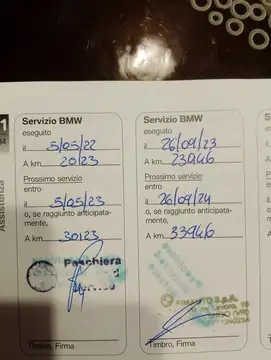 Assistenza
Servizio BMW
eseguito
il 5/05/22
A km 20123
Prossimo servizio
entro
il 5/05/23
o, se raggiunto anticipata-
mente,
A km 30123
Peschiera
Timbro, Firma
Servizio BMW
eseguito
il 26/09/23
A km 23946
Prossimo servizio
entro
il 26/09/24
o, se raggiunto anticipata-
mente,
A km 33946
S.p.A.
(VR)
Timbro, Firma